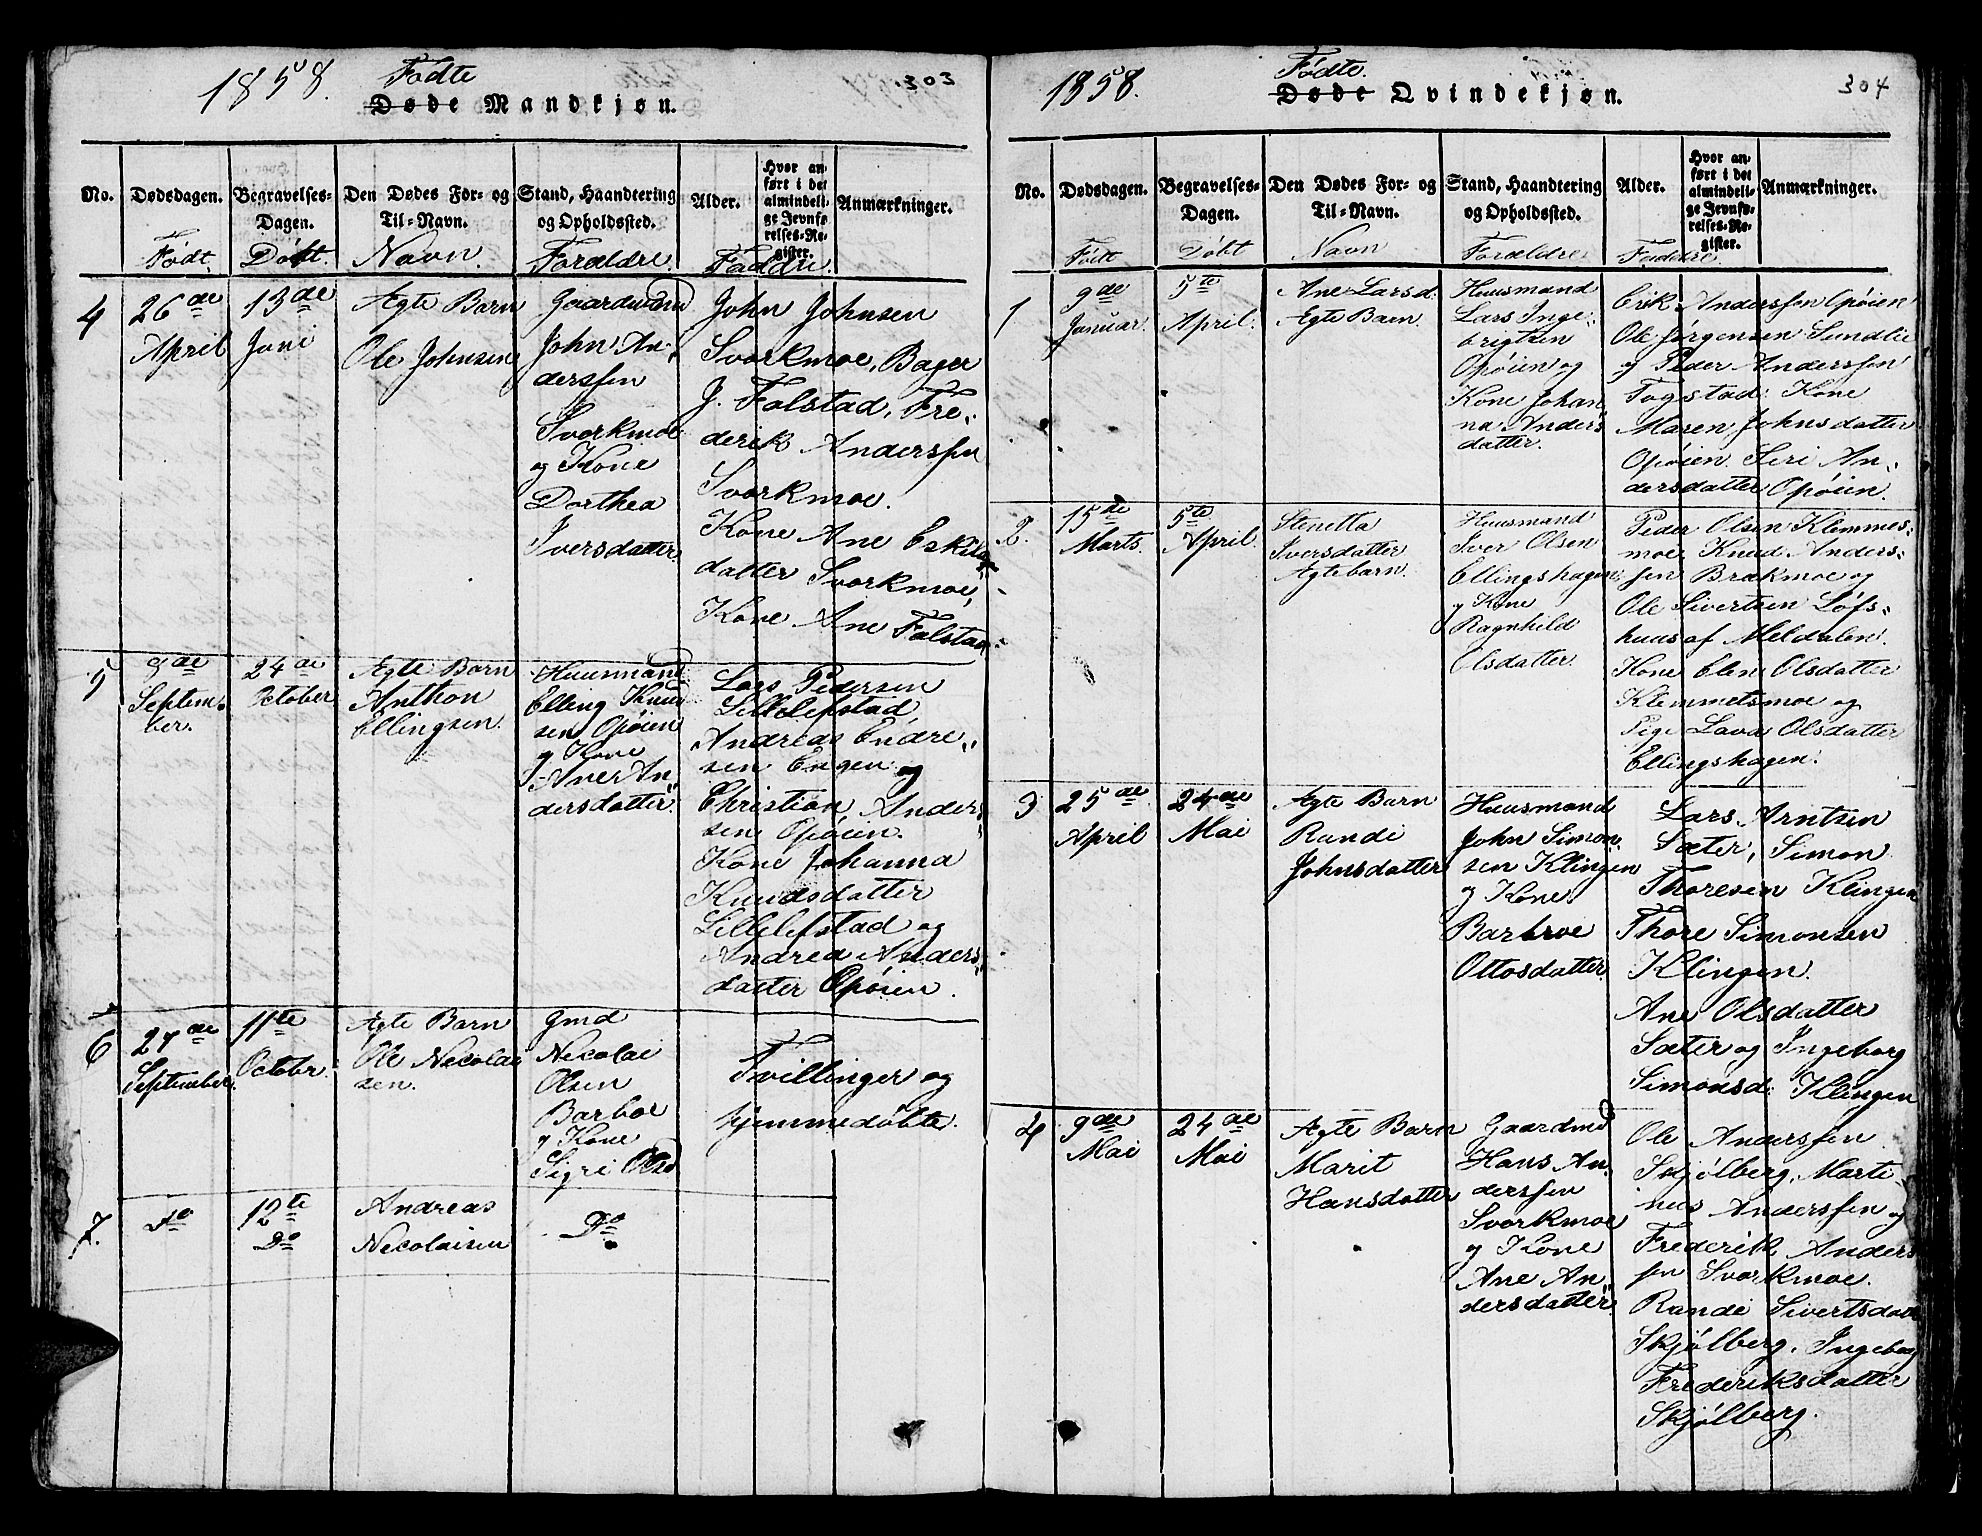 1858. Fødte 303
Døde Mandkjøn.
No. Dødsdagen. Begravelses-Dagen. Den Dødes For- og Til-Navn. Stand, Haandtering og Opholdssted. Alder. Hvor anført i det almindelige Jevnførelses-Register. Anmærkninger.
Født. Døbt. Navn. Forældre. Faddre.
4
26de
April
13de
Juni
Ægte Barn
Ole Johnsen
Gaardmand
John An-
derssen
Svorkmoe
og Kone
Dorthea
Iversdatter
John Johnsen
Svorkmoe, Bager
J. Folstad, Fre-
derik Anderssen
Svorkmoe.
Kone Ane Eskils-
datter Svorkmoe,
Kone Ane Folstad
5
9de
Septem-
ber.
24de
October
Ægte Barn
Anthon
Ellingsen.
Huusmand
Elling Knud
sen Opøien
og Kone
Ane An-
dersdatter
Lars Pedersen
Lillelefstad,
Andreas Endre-
sen Engen og
Christian Anders-
sen Opøien.
Kone Johanna
Knudsdatter
Lillelefstad og
Andrea Anders-
datter Opøien.
6
27de
September.
11te
Octobr.
Ægte Barn
Ole Necolai
sen.
Gmd
Necolai
Olsen
Barboe
og Kone
Sigri Olsd
Tvillinger og
hjemmedøbte.
7.
Do
12te
Do
Andreas
Necolaisen
Do
1858. Fødte. 304
Døde Qvindekjøn.
No. Dødsdagen. Begravelses-Dagen. Den Dødes For- og Til-Navn. Stand, Haandtering og Opholdssted. Alder. Hvor anført i det almindelige Jevnførelses-Register. Anmærkninger.
Født Døbt Navn Forældre Faddere
1
9de
Januar.
5te
April.
Ane Larsd.
Ægte Barn.
Huusmand
Lars Inge-
brigtsen
Opøien og
Kone Johan
na Anders
datter.
Erik Anderssen Opøien
Ole Jørgensen Sundlie
og Peder Anderssen
Fogstad. Kone
Maren Johnsdatter
Opøien. Siri An-
dersdatter Opøien.
2.
15de
Marts.
5te
April.
Stenetta
Iversdatter
Ægtebarn.
Huusmand
Iver Olsen
Ellingshagen
og Kone
Ragnhild
Olsdatter.
Peder Olsen Klemmes-
moe, Knud Anders-
sen Brækmoe og
Ole Sivertsen Løfs-
huus af Meldalen.
Kone Elen Olsdatter
Klemmetsmoe og
Pige Lava Olsdatter
Ellingshagen.
3
25de
April
24de
Mai
Ægte Barn
Randi
Johnsdatter
Huusmand
John Simon
sen Klingen
og Kone
Barbroe
Ottosdatter
Lars Arntsen
Sæter, Simon
Thoresen Klingen
Thore Simonsen
Klingen.
Ane Olsdatter
Sæter og Ingeborg
Simonsd. Klingen
4
9de
Mai
24de
Mai
Ægte Barn
Marit
Hansdatter
Gaardmd
Hans An-
derssen
Svorkmoe
og Kone
Ane An-
dersdatter
Ole Anderssen
Skjølberg, Marti-
nus Anderssen og
Frederik Anders
sen Svorkmoe.
Randi Sivertsdatt
Skjølberg, Ingeborg
Frederiksdatter
Skjølberg.